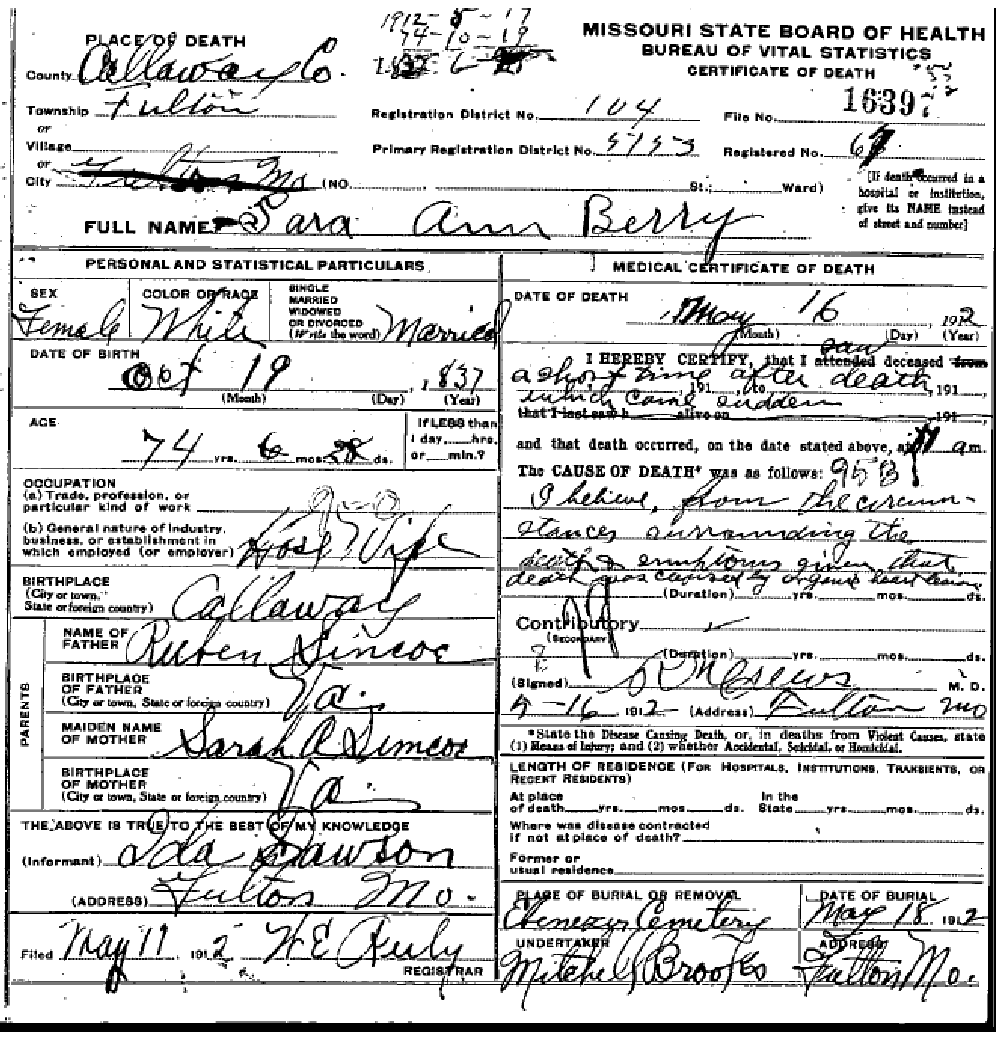 1912-5-17
74-10-19
MISSOURI STATE BOARD OF HEALTH
BUREAU OF VITAL STATISTICS
CERTIFICATE OF DEATH
PLACE OF DEATH
County Callaway Co.
Township Fulton
or
Village
or
City Fulton Mo (NO. St.; Ward)
Registration District No. 104
Primary Registration District No. 5153
File No. 16397
Registered No.
[If death occurred in a hospital or institution, give its NAME instead of street and number]
FULL NAME Sara Ann Berry
PERSONAL AND STATISTICAL PARTICULARS
SEX Female
COLOR OR RACE White
SINGLE MARRIED WIDOWED OR DIVORCED (Write the word) Married
DATE OF BIRTH
Oct 19, 1837
(Month) (Day) (Year)
AGE
74 yrs. 6 mos. 28 ds.
If LESS than 1 day, hrs. or min.?
OCCUPATION
(a) Trade, profession, or particular kind of work
(b) General nature of industry, business, or establishment in which employed (or employer) Hose Wife
BIRTHPLACE
(City or town, State or foreign country) Callaway
PARENTS
NAME OF FATHER Ruben Simcoe
BIRTHPLACE OF FATHER
(City or town, State or foreign country) Va.
MAIDEN NAME OF MOTHER Sarah A Simcoe
BIRTHPLACE OF MOTHER
(City or town, State or foreign country) Va.
THE ABOVE IS TRUE TO THE BEST OF MY KNOWLEDGE
(Informant) Ida Dawson
(ADDRESS) Fulton Mo.
Filed May 17 1912
REGISTRAR
MEDICAL CERTIFICATE OF DEATH
DATE OF DEATH
May 16, 1912
(Month) (Day) (Year)
saw
I HEREBY CERTIFY, that I attended deceased from
a short time after death, 191 , to 191
which came sudden
that I last saw h alive on 191
and that death occurred, on the date stated above, at am.
The CAUSE OF DEATH* was as follows: 95B
I believe, from the circum-
stances surrounding the
death & symptoms given that
death was caused by organic heart lesion
(Duration) yrs. mos. ds.
Contributory
(SECONDARY)
(Duration) yrs. mos. ds.
(Signed) M. D.
5-16 1912 (Address) Fulton Mo
*State the Disease Causing Death, or, in deaths from Violent Causes, state
(1) Means of Injury; and (2) whether Accidental, Suicidal, or Homicidal.
LENGTH OF RESIDENCE (FOR HOSPITALS, INSTITUTIONS, TRANSIENTS, OR RECENT RESIDENTS)
At place of death yrs. mos. ds. In the State yrs. mos. ds.
Where was disease contracted
if not at place of death?
Former or
usual residence
PLACE OF BURIAL OR REMOVAL
Ebenezer Cemetery
DATE OF BURIAL
May 18, 1912
UNDERTAKER
Mitchell Brooks
ADDRESS
Fulton Mo.